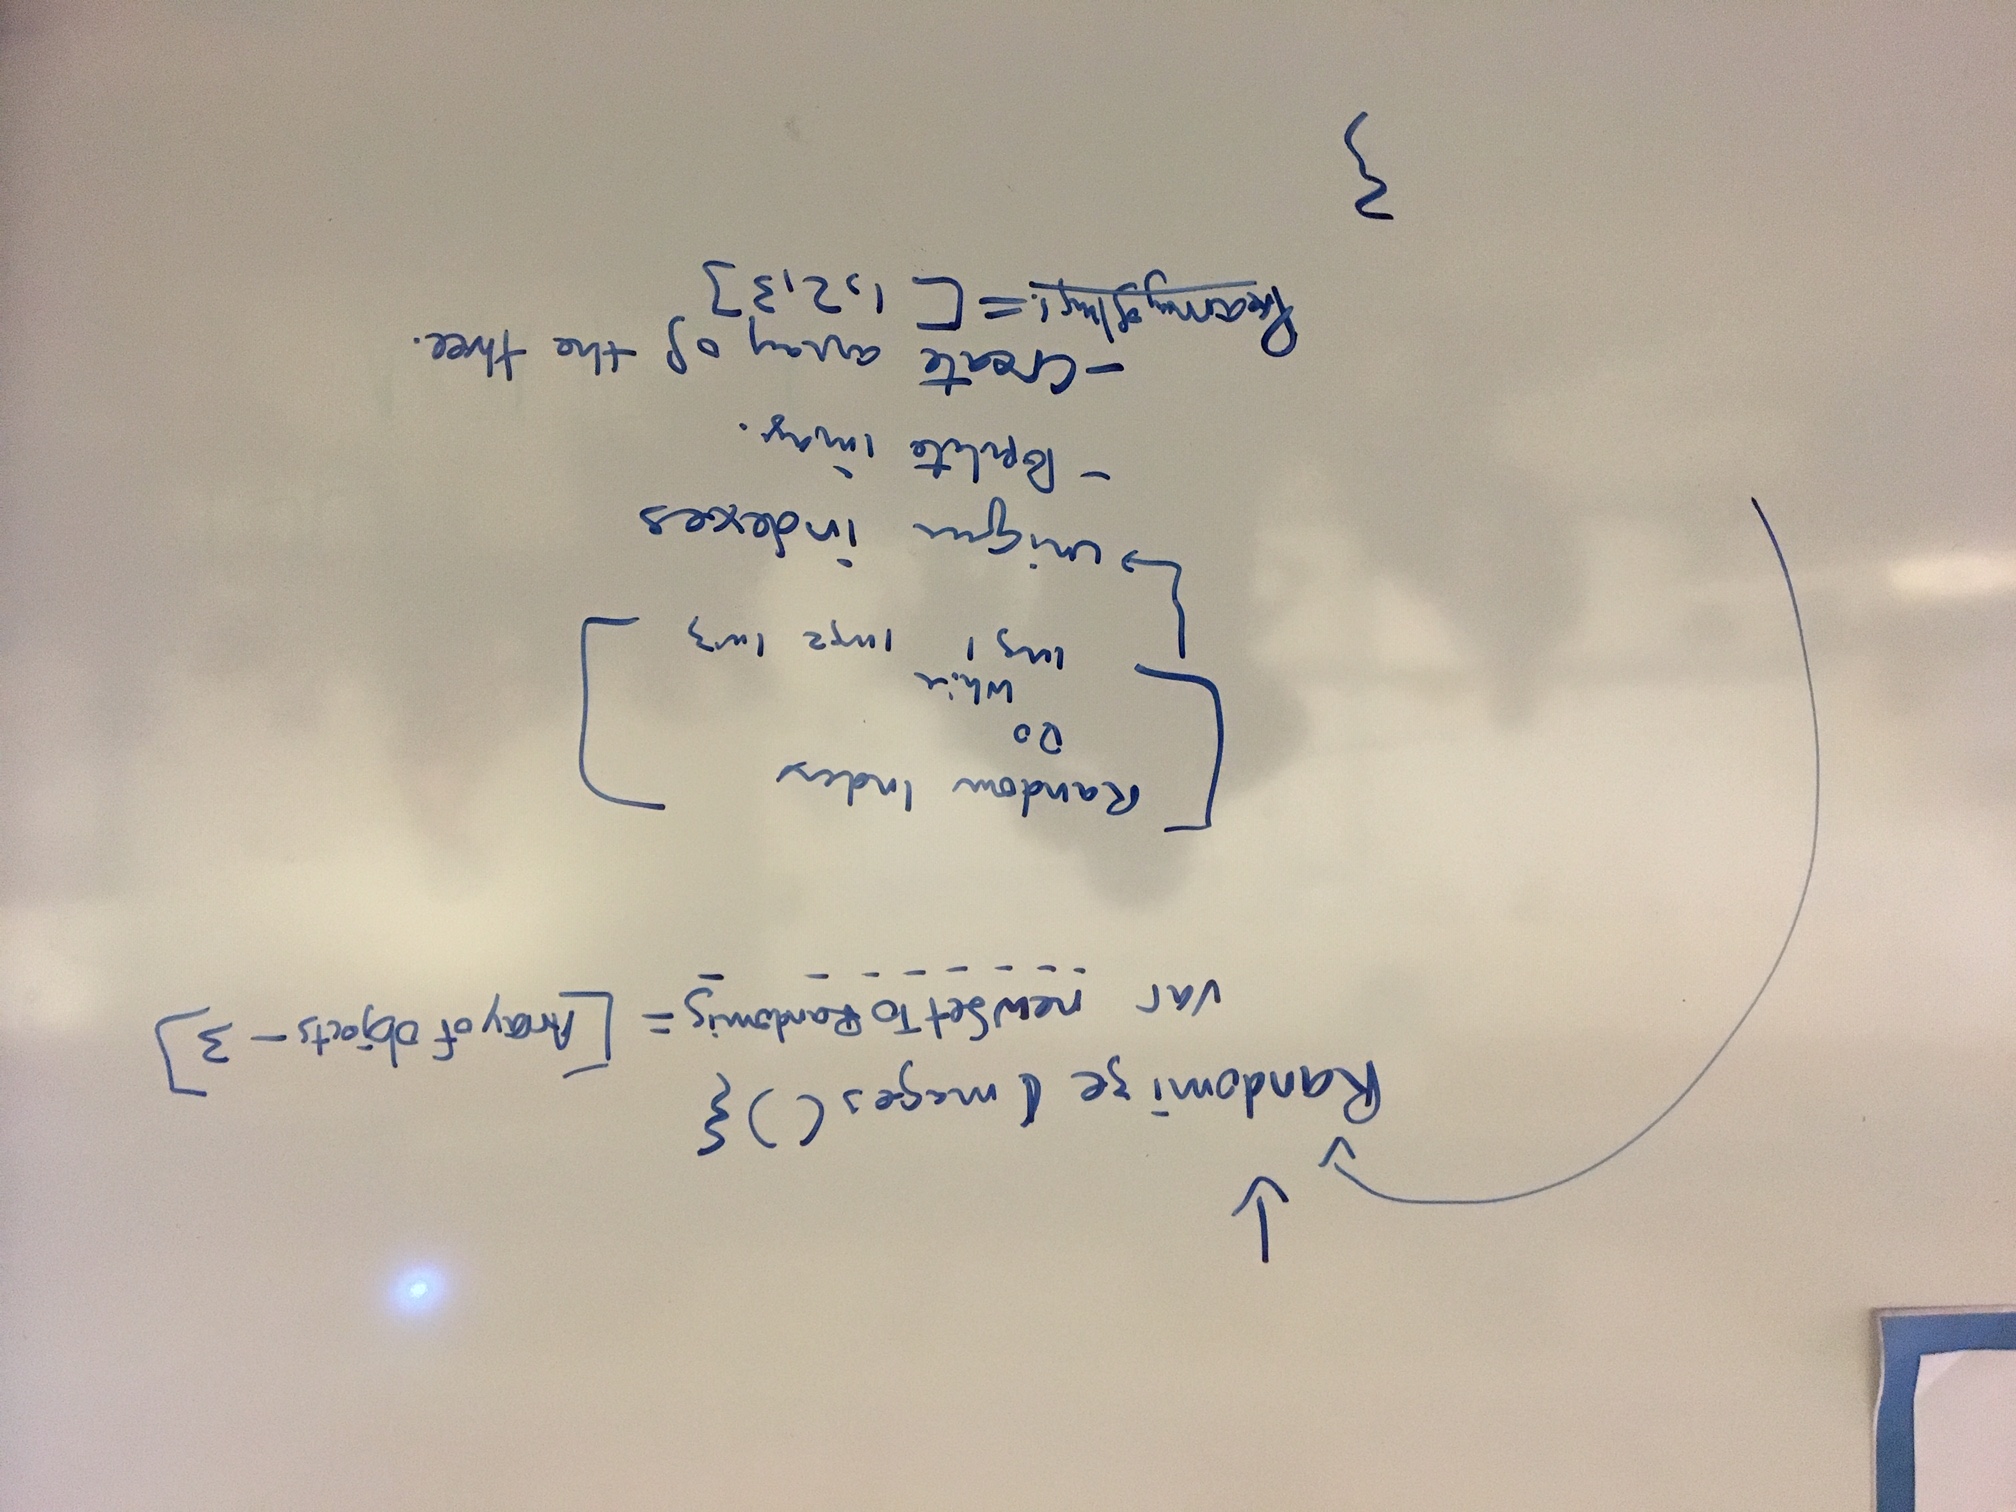 Randomize Images () {
var newSetToRandomiz = [Array of Objects - 3]
Random Index
Do
While
Img 1 Img2 Img3
unique indexes
- Populate image.
- Create array of the three.
Prearray of Img1. = [ 1, 2, 3 ]
}